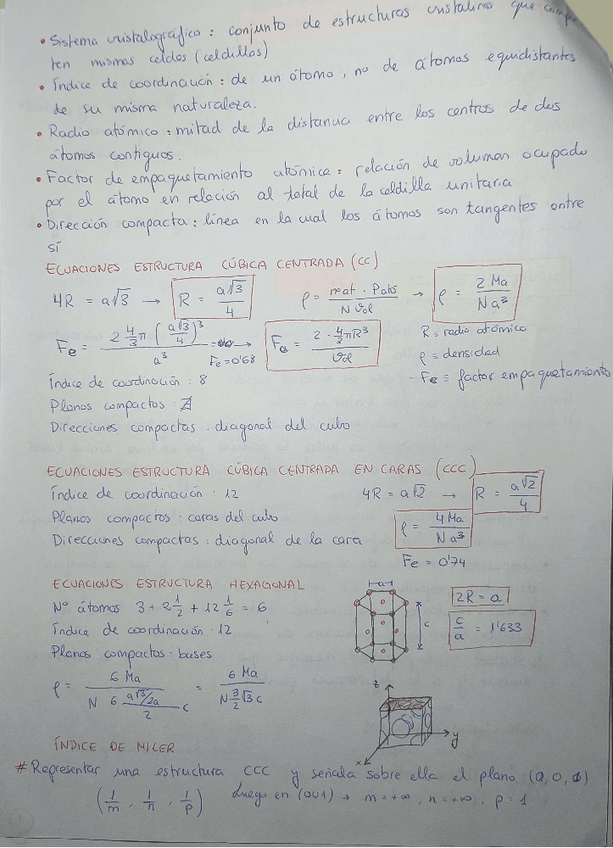 • Sistema cristalográfico : conjunto de estructuras cristalinas que
ten mismas celdas (celdillas)
• Índice de coordinación : de un átomo, no de átomos equidistantes
de su misma naturaleza.
• Radio atómico : mitad de la distancia entre los centros de dos
átomos contiguos.
• Factor de empaquetamiento atómico : relación de volumen ocupado
por el átomo en relación al total de la celdilla unitaria
• Dirección compacta : línea en la cual los átomos son tangentes entre
sí
ECUACIONES ESTRUCTURA CÚBICA CENTRADA (CC)
4R = a√3 → R = a√3/4 ρ = nºat · Pato / N Vol → ρ = 2 Ma / Na³
Fe = 2 4/3 π (a√3/4)³ / a³ = → Fe = 2 · 4/3 πR³ / Vol R = radio atómico
Fe = 0'68 ρ = densidad
Índice de coordinación : 8 Fe = factor empaquetamiento
Planos compactos : ∄
Direcciones compactas : diagonal del cubo
ECUACIONES ESTRUCTURA CÚBICA CENTRADA EN CARAS (CCC)
Índice de coordinación : 12 4R = a√2 → R = a√2/4
Planos compactos : caras del cubo ρ = 4 Ma / Na³
Direcciones compactas : diagonal de la cara
Fe = 0'74
ECUACIONES ESTRUCTURA HEXAGONAL
Nº átomos 3 + 2 1/2 + 12 1/6 = 6 a 2R = a
Índice de coordinación : 12 c c/a = 1'633
Planos compactos : bases
ρ = 6 Ma / N 6 (a√3/2 a / 2) c = 6 Ma / N 3/2 √3 c
z
y
x
ÍNDICE DE MILER
# Representar una estructura CCC y señala sobre ella el plano (0, 0, 1)
(1/m , 1/n , 1/p) Luego en (001) → m = +∞, n = +∞, p = 1